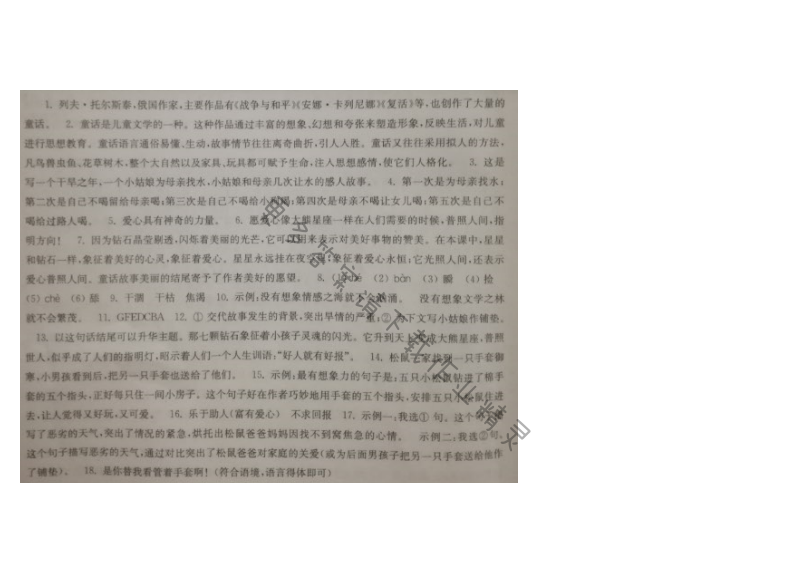 1. 列夫·托尔斯泰,俄国作家,主要作品有《战争与和平》《安娜·卡列尼娜》《复活》等,也创作了大量的
童话。 2. 童话是儿童文学的一种。这种作品通过丰富的想象、幻想和夸张来塑造形象,反映生活,对儿童
进行思想教育。童话语言通俗易懂、生动,故事情节往往离奇曲折,引人入胜。童话又往往采用拟人的方法,
凡鸟兽虫鱼、花草树木,整个大自然以及家具、玩具都可赋予生命,注入思想感情,使它们人格化。 3. 这是
写一个干旱之年,一个小姑娘为母亲找水,小姑娘和母亲几次让水的感人故事。 4. 第一次是为母亲找水;
第二次是自己不喝留给母亲喝;第三次是自己不喝给小狗喝;第四次是母亲不喝让女儿喝;第五次是自己不
喝给过路人喝。 5. 爱心具有神奇的力量。 6. 愿爱心像大熊星座一样在人们需要的时候,普照人间,指
明方向! 7. 因为钻石晶莹剔透,闪烁着美丽的光芒,它可以用来表示对美好事物的赞美。在本课中,星星
和钻石一样,象征着美好的心灵,象征着爱心。星星永远挂在夜空,象征着爱心永恒;它光照人间,还表示
爱心普照人间。童话故事美丽的结尾寄予了作者美好的愿望。 8. (2) bàn (3) 瞬 (4) 拾
(5) chè (6) 舔 9. 干涸 干枯 焦渴 10. 示例:没有想象情感之海就不会汹涌。 没有想象文学之林
就不会繁茂。 11. GFEDCBA 12. ① 交代故事发生的背景,突出旱情的严重;② 为下文写小姑娘作铺垫。
13. 以这句话结尾可以升华主题。那七颗钻石象征着小孩子灵魂的闪光。它升到天上变成大熊星座,普照
世人,似乎成了人们的指明灯,昭示着人们一个人生训语:“好人就有好报”。 14. 松鼠一家找到一只手套御
寒,小男孩看到后,把另一只手套也送给了他们。 15. 示例:最有想象力的句子是:五只小松鼠钻进了棉手
套的五个指头,正好每只住一间小房子。这个句子好在作者巧妙地用手套的五个指头,安排五只小松鼠住进
去,让人觉得又好玩,又可爱。 16. 乐于助人(富有爱心) 不求回报 17. 示例一:我选① 句。这个句子描
写了恶劣的天气,突出了情况的紧急,烘托出松鼠爸爸妈妈因找不到窝焦急的心情。 示例二:我选②句。
这个句子描写恶劣的天气,通过对比突出了松鼠爸爸对家庭的关爱(或为后面男孩子把另一只手套送给他作
了铺垫)。 18. 是你替我看管着手套啊!(符合语境,语言得体即可)